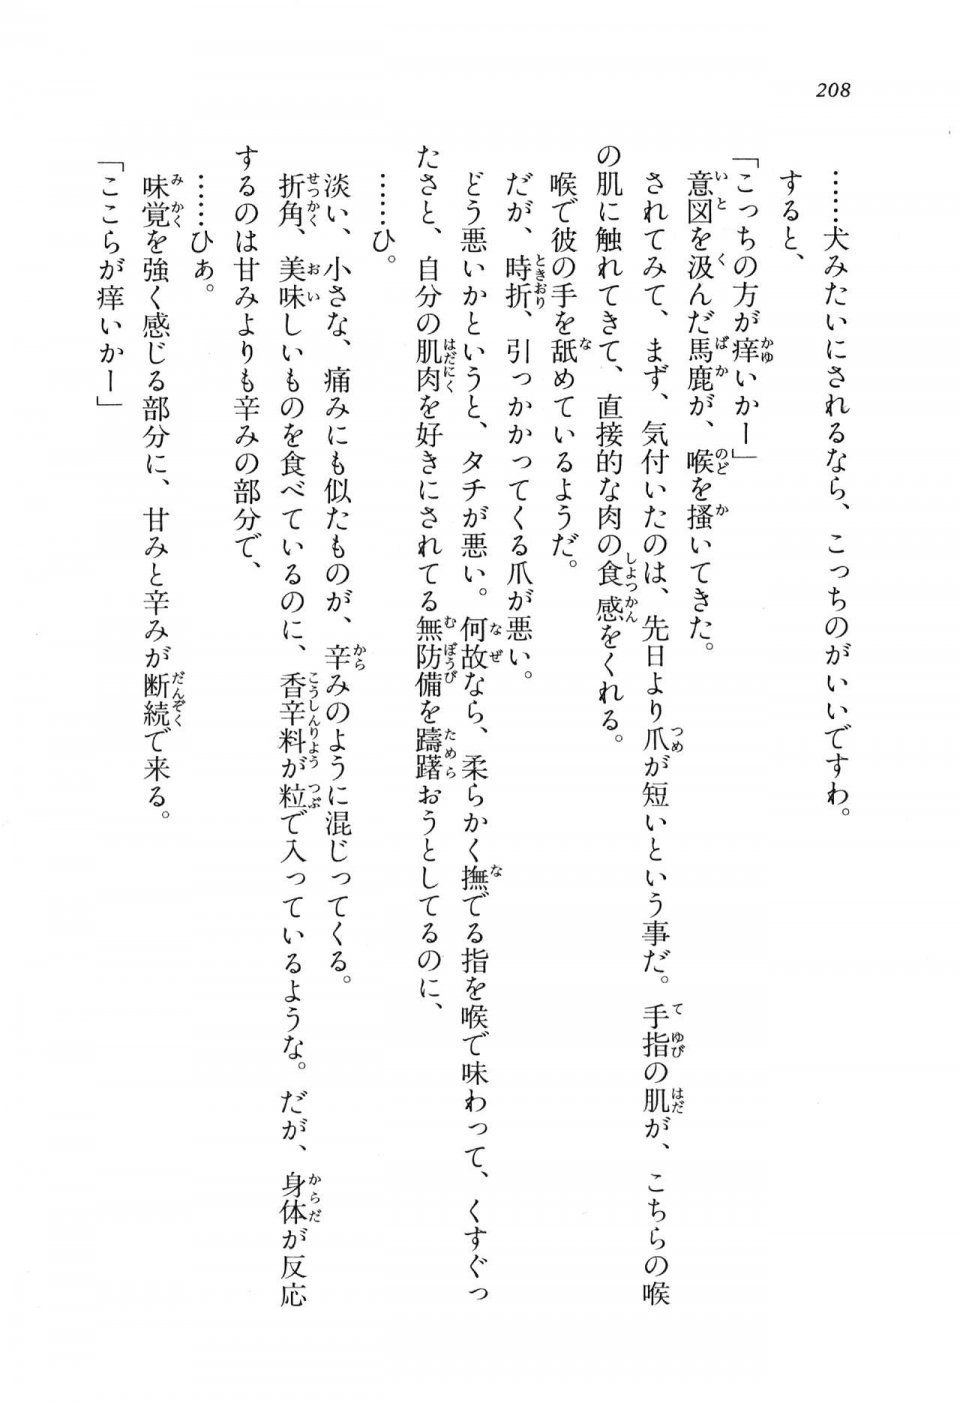 208
……犬みたいにされるなら、こっちのがいいですわ。
すると、
「こっちの方が痒いかー」
意図を汲んだ馬鹿が、喉を掻いてきた。
されてみて、まず、気付いたのは、先日より爪が短いという事だ。手指の肌が、こちらの喉
の肌に触れてきて、直接的な肉の食感をくれる。
喉で彼の手を舐めているようだ。
だが、時折、引っかかってくる爪が悪い。
どう悪いかというと、タチが悪い。何故なら、柔らかく撫でる指を喉で味わって、くすぐっ
たさと、自分の肌肉を好きにされてる無防備を躊躇おうとしてるのに、
……ひ。
淡い、小さな、痛みにも似たものが、辛みのように混じってくる。
折角、美味しいものを食べているのに、香辛料が粒で入っているような。だが、身体が反応
するのは甘みよりも辛みの部分で、
……ひぁ。
味覚を強く感じる部分に、甘みと辛みが断続で来る。
「ここらが痒いかー」